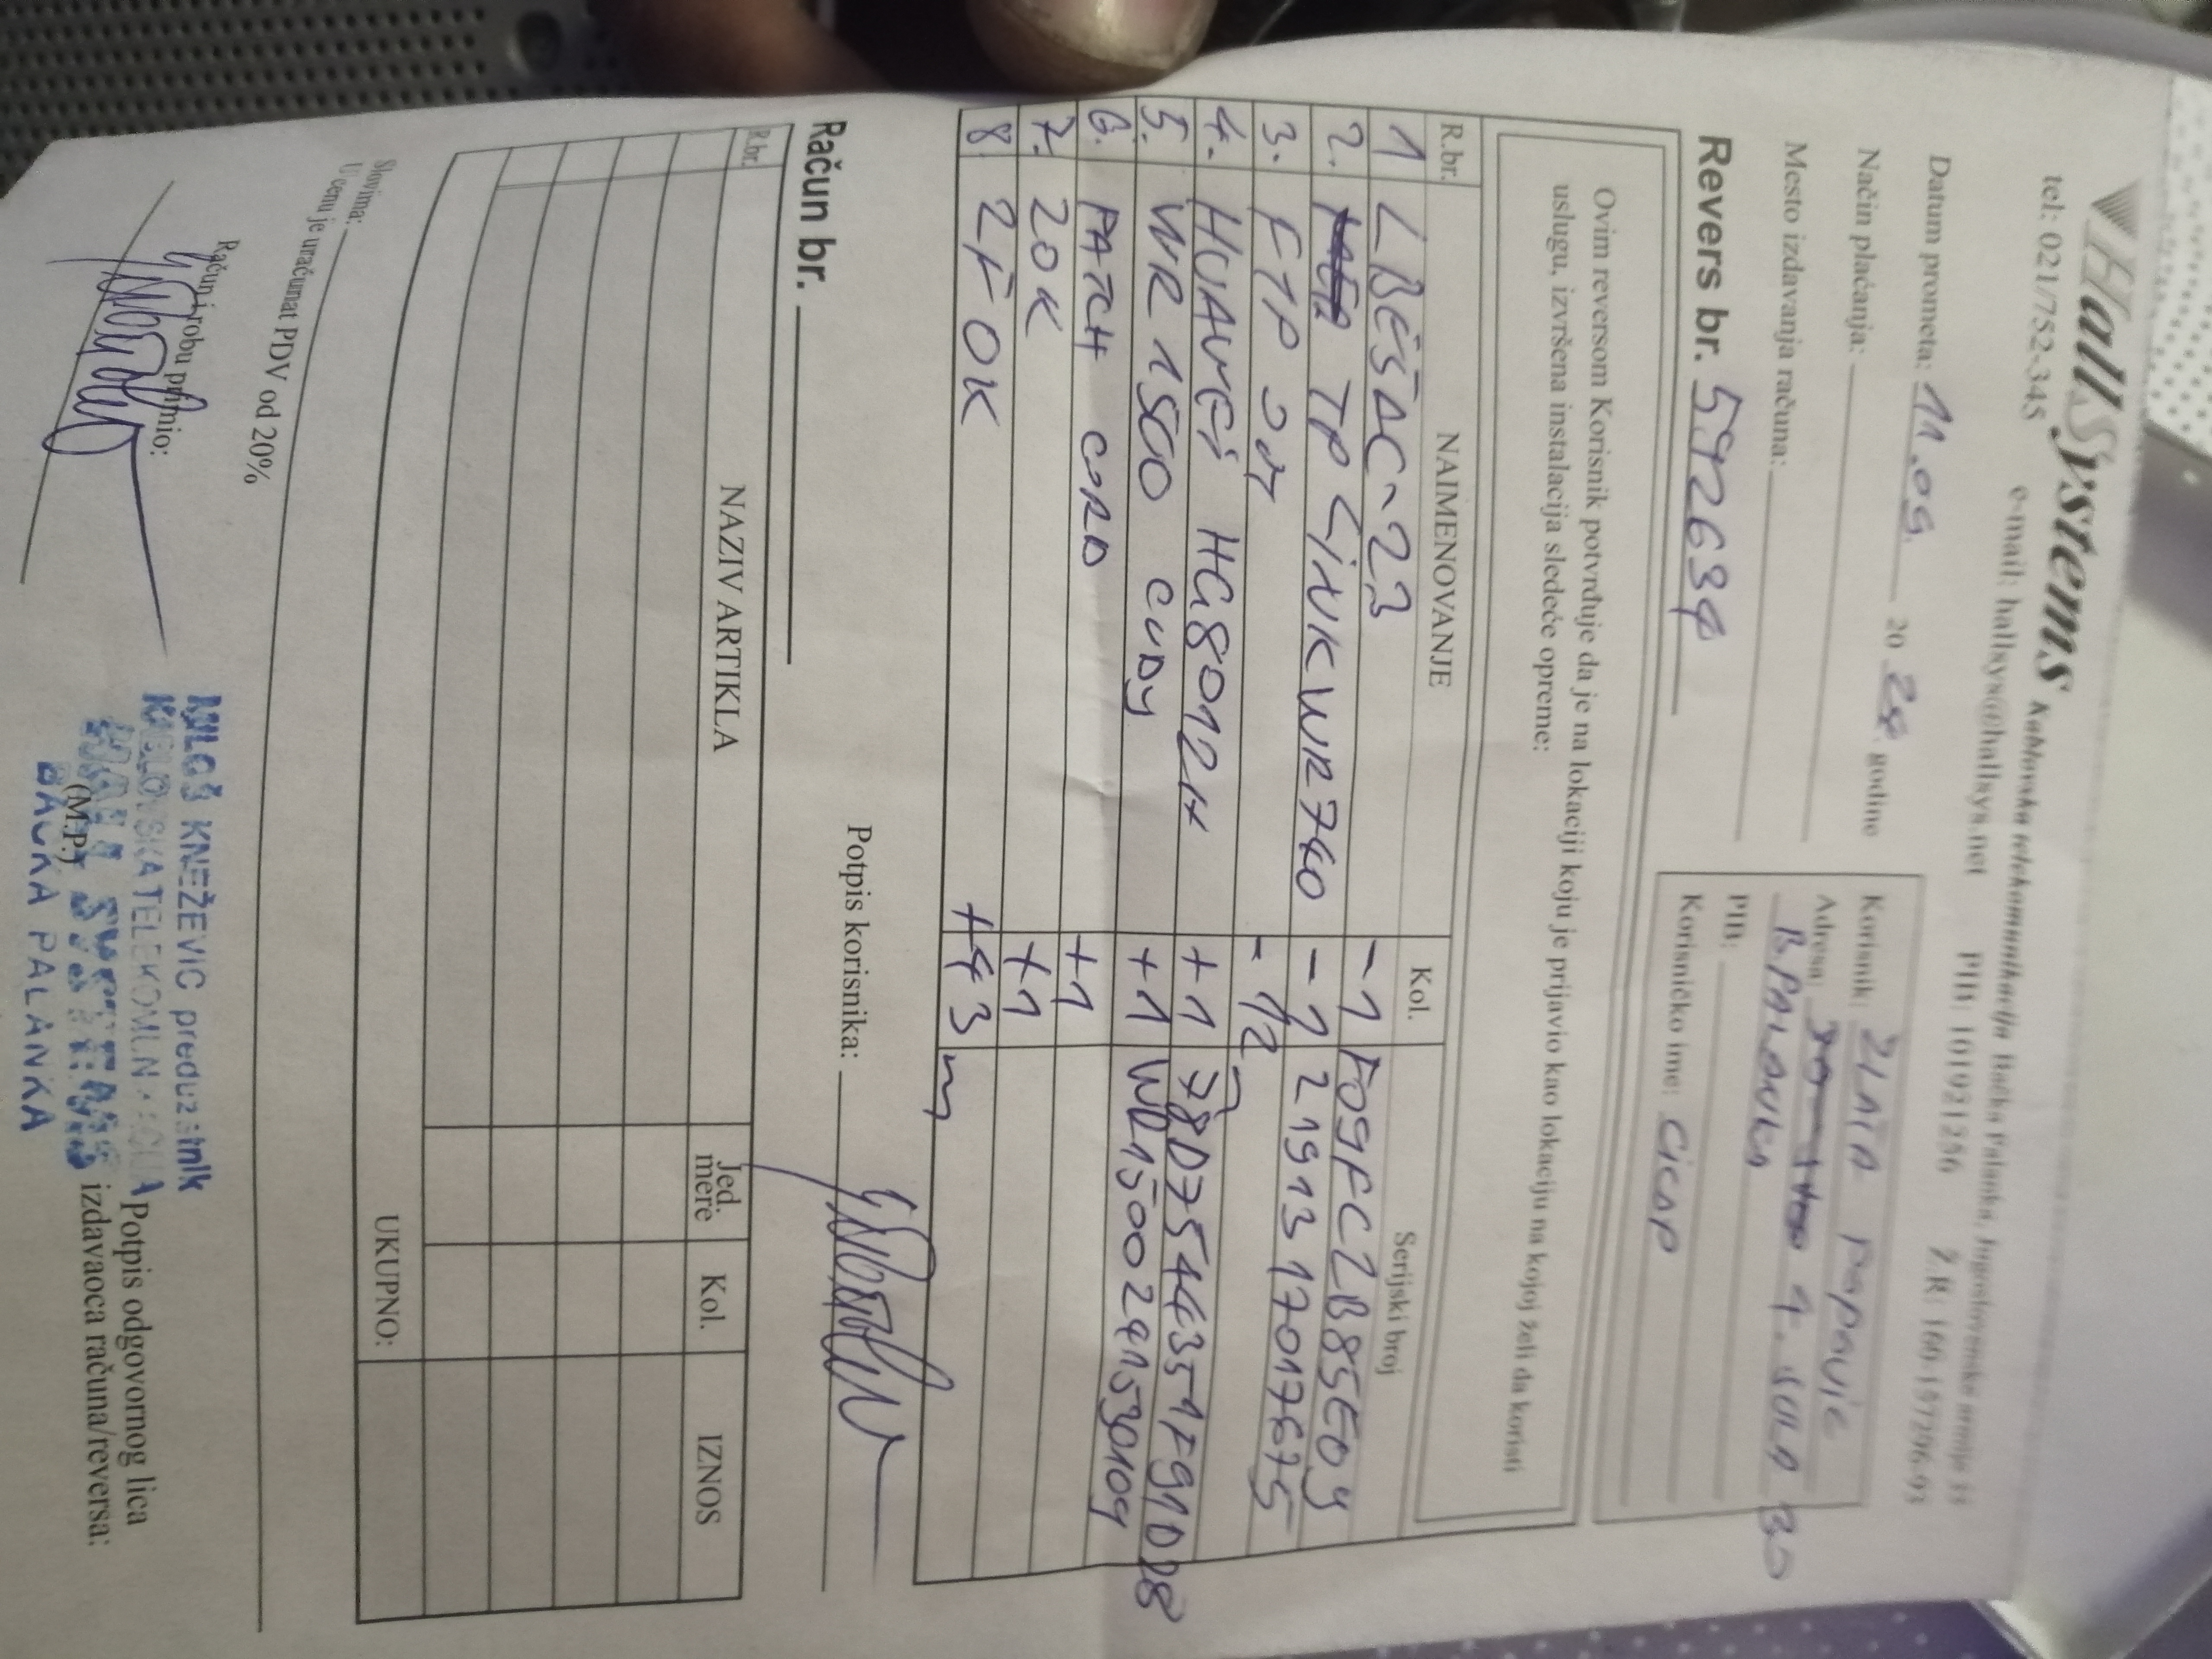 HallSystems Kablovska telekomunikacija Bačka Palanka, Jugoslovenske armije 11
tel: 021/752-345 e-mail: hallsys@hallsys.net PIB: 101921256 Ž.R: 160-157296-93
Datum prometa: 11.09. 20 24 godine
Način plaćanja:
Mesto izdavanja računa:
Korisnik: ZLATA POPOVIĆ
Adresa: 4.
B.PALANKA
PIB:
Korisničko ime: CICAP
Revers br. 5926394
Ovim reversom Korisnik potvrđuje da je na lokaciji koju je prijavio kao lokaciju na kojoj želi da koristi
uslugu, izvršena instalacija sledeće opreme:
R.br. NAIMENOVANJE Kol. Serijski broj
1 LBE5AC-23 -1 F09FC2B85E09
2. TP LINK WR740 -1 2191317017675
3. FTP -12
4. HUAWEI HG8012H +1 78D7544351F91DD8
5. WR1500 CUDY +1 WR1500241530109
6. PATCH CORD +1
7. ZOK +1
8. 2FOK +43 m
Potpis korisnika:
Račun br.
R.br. NAZIV ARTIKLA Jed. mere Kol. IZNOS
UKUPNO:
Slovima:
U cenu je uračunat PDV od 20%
Račun i robu primio:
MILOŠ KNEŽEVIĆ preduzetnik
KABLOVSKA TELEKOMUNIKACIJA
HALL SYSTEMS
BAČKA PALANKA
(M.P.)
Potpis odgovornog lica
izdavaoca računa/reversa: